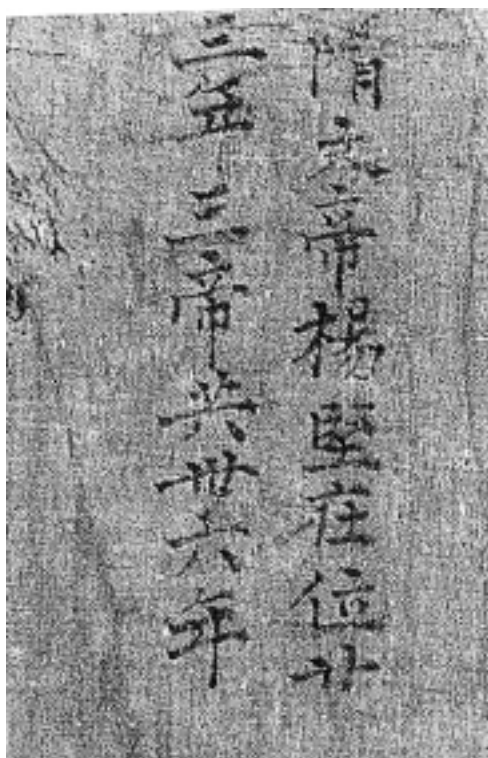 隋文帝楊堅在位廿
三年 三帝共卅六年